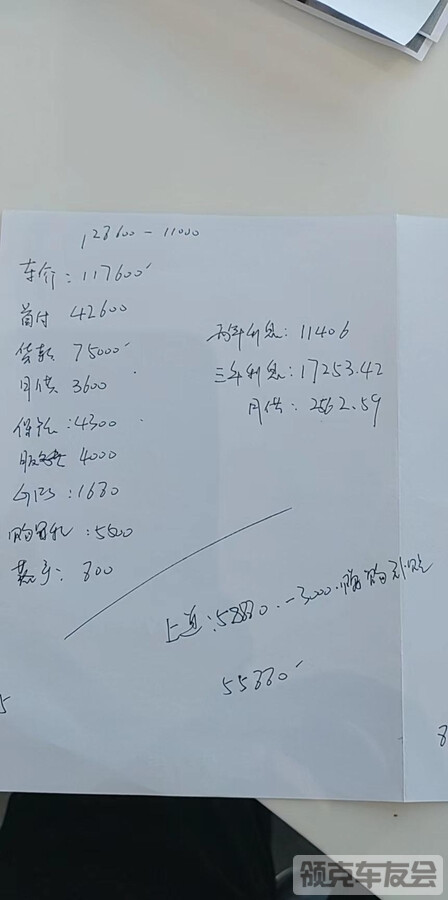 128600-11000
车价:117600
首付 42600
贷款 75000
月供 3600
保险:4300
4000
GPS:1680
购置税:5500
800
两年利息:11406
三年利息:17253.42
月供:2562.59
58880.-3000.补贴
55880
5
8
领克车友会